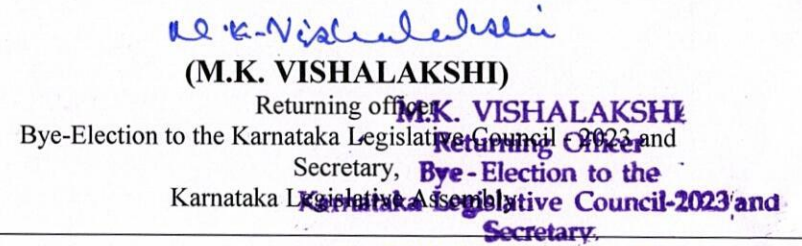 M.K. Vishalakshi
(M.K. VISHALAKSHI)
Returning officer
Bye-Election to the Karnataka Legislative Council - 2023 and
Secretary,
Karnataka Legislative Assembly
M.K. VISHALAKSHI
Returning Officer
Bye-Election to the
Karnataka Legislative Council-2023 and
Secretary,